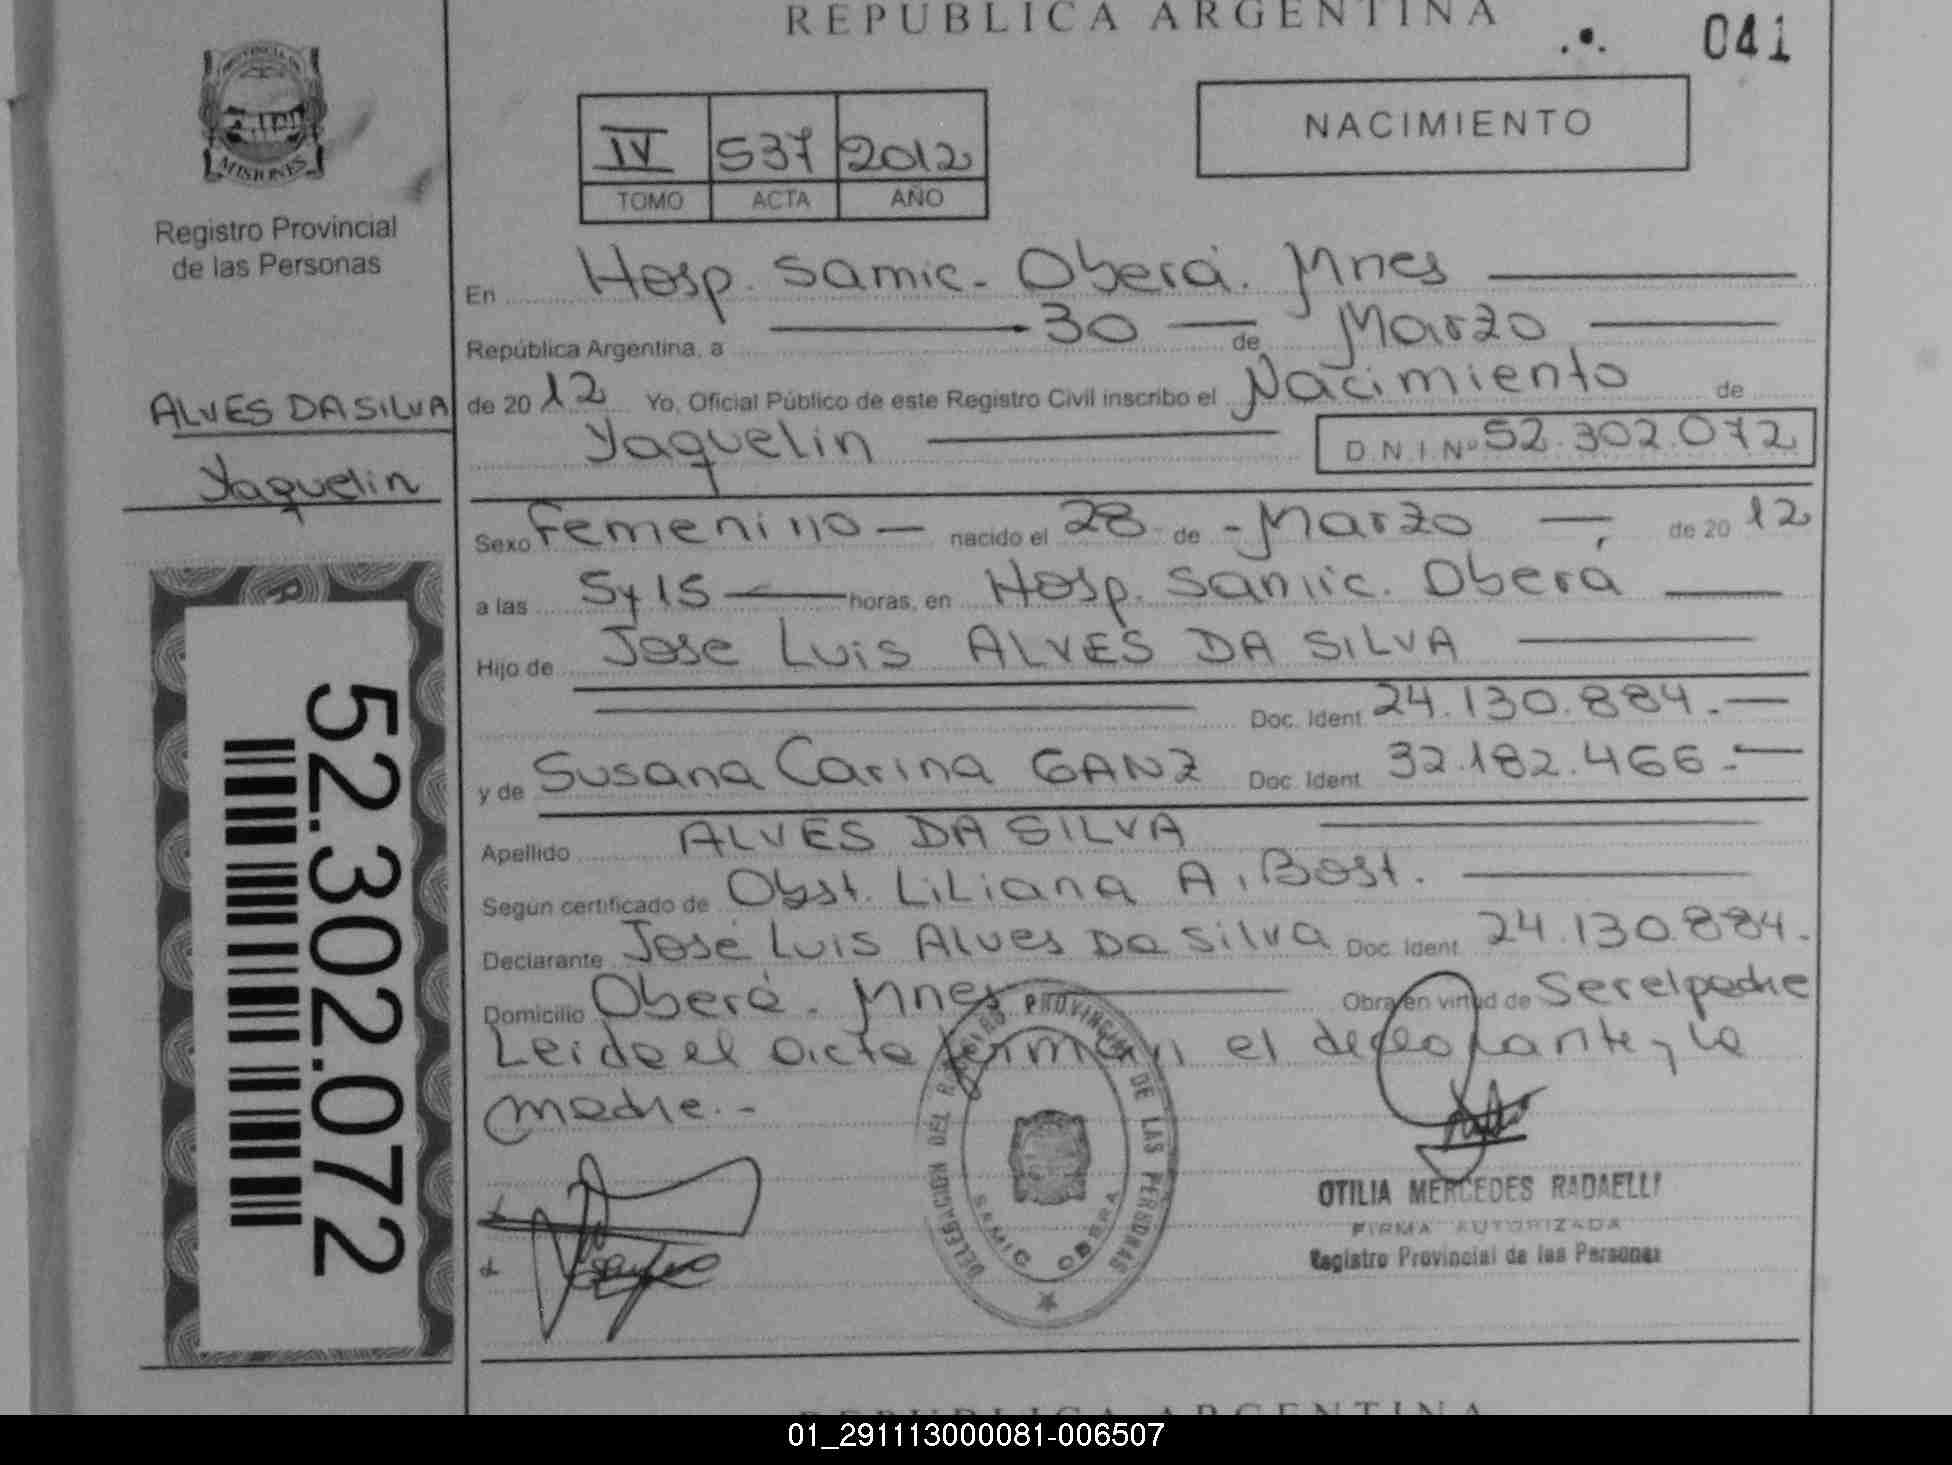 REPUBLICA ARGENTINA
041
PROVINCIA DE
MISIONES
Registro Provincial
de las Personas
IV 537 2012
TOMO ACTA AÑO
NACIMIENTO
En Hosp. Samic. Oberá. Mnes
República Argentina, a 30 de Marzo
de 2012 Yo, Oficial Público de este Registro Civil inscribo el Nacimiento de
Yaquelin D.N.I. Nº 52.302.072
ALVES DA SILVA
Yaquelin
Sexo Femenino - nacido el 28 de - Marzo - de 2012
a las 5y15 horas, en Hosp. Samic. Oberá
Hijo de Jose Luis ALVES DA SILVA
Doc. Ident. 24.130.884.-
y de Susana Carina GANZ Doc. Ident. 32.182.466.-
Apellido ALVES DA SILVA
Según certificado de Obst. Liliana A. Bost.
Declarante José Luis Alves Da Silva Doc. Ident. 24.130.884.
Domicilio Oberá. Mnes Obra en virtud de Ser el padre
Leida el acta firman el declarante y la
madre.-
52.302.072
DELEGACION DEL REGISTRO PROVINCIAL DE LAS PERSONAS
SAMIC OBERA
OTILIA MERCEDES RADAELLI
FIRMA AUTORIZADA
Registro Provincial de las Personas
REPUBLICA ARGENTINA
01_291113000081-006507